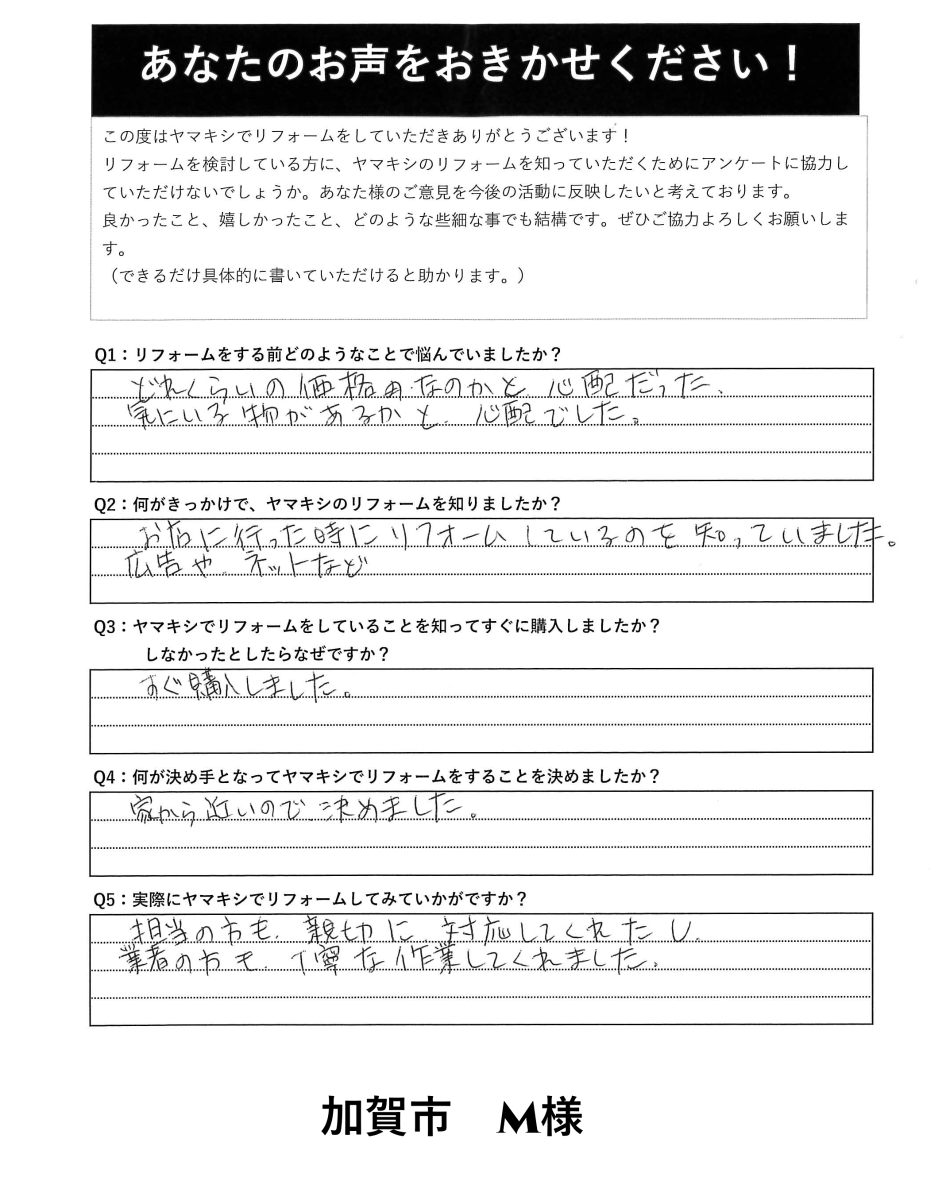 あなたのお声をおきかせください！
この度はヤマキシでリフォームをしていただきありがとうございます！
リフォームを検討している方に、ヤマキシのリフォームを知っていただくためにアンケートに協力し
ていただけないでしょうか。あなた様のご意見を今後の活動に反映したいと考えております。
良かったこと、嬉しかったこと、どのような些細な事でも結構です。ぜひご協力よろしくお願いしま
す。
（できるだけ具体的に書いていただけると助かります。）
Q1：リフォームをする前どのようなことで悩んでいましたか？
どれくらいの価格なのかと、心配だった、
気にいる物があるかと、心配でした。
Q2：何がきっかけで、ヤマキシのリフォームを知りましたか？
お店に行った時にリフォームしているのを知っていました。
広告や、ネットなど
Q3：ヤマキシでリフォームをしていることを知ってすぐに購入しましたか？
しなかったとしたらなぜですか？
すぐ購入しました。
Q4：何が決め手となってヤマキシでリフォームをすることを決めましたか？
家から近いので、決めました。
Q5：実際にヤマキシでリフォームしてみていかがですか？
担当の方も、親切に対応してくれたし、
業者の方も、丁寧な作業してくれました。
加賀市　M様